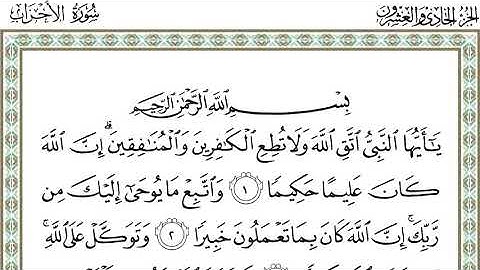 الجزء الحادي والعشرون
سُورَةُ الأَحْزَاب
بِسْمِ اللَّهِ الرَّحْمَٰنِ الرَّحِيمِ
يَا أَيُّهَا النَّبِيُّ اتَّقِ اللَّهَ وَلَا تُطِعِ الْكَافِرِينَ وَالْمُنَافِقِينَ ۗ إِنَّ اللَّهَ
كَانَ عَلِيمًا حَكِيمًا ١ وَاتَّبِعْ مَا يُوحَىٰ إِلَيْكَ مِن
رَّبِّكَ ۚ إِنَّ اللَّهَ كَانَ بِمَا تَعْمَلُونَ خَبِيرًا ٢ وَتَوَكَّلْ عَلَى اللَّهِ ۚ